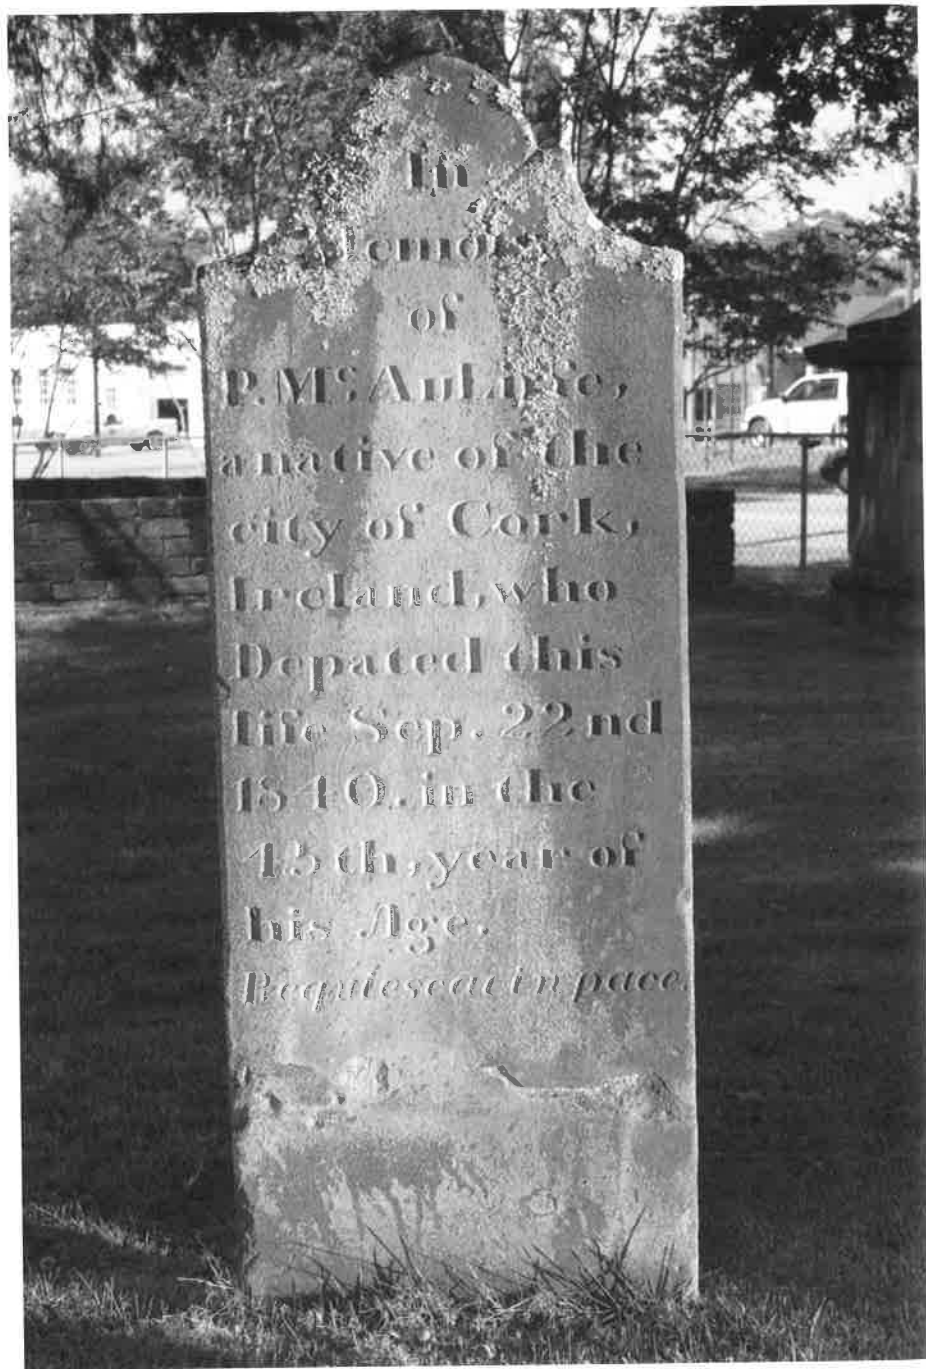 In
Memory
of
P. Mc. Auluffe,
a native of the
city of Cork,
Ireland, who
Depated this
life Sep. 22nd
1840, in the
45th, year of
his Age.
Requiescat in pace.